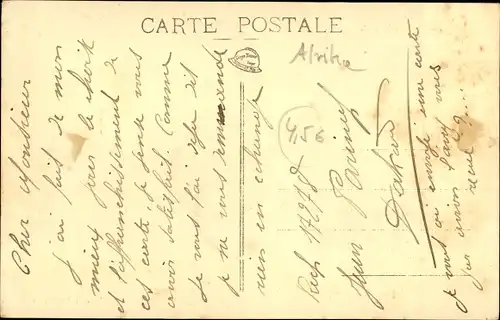 CARTE POSTALE
Afrika
456
Cher Monsieur
J'ai fait de mon
mieux pour le choix
et l'affranchissement de
ces carte, je pense vous
avoir satisfait. Comme
je vous l'ai déjà dit
je ne vous demande
rien en échange
17278
Dakar
Je vous ai envoyé une carte
par avion l'avez vous
reçue ?...